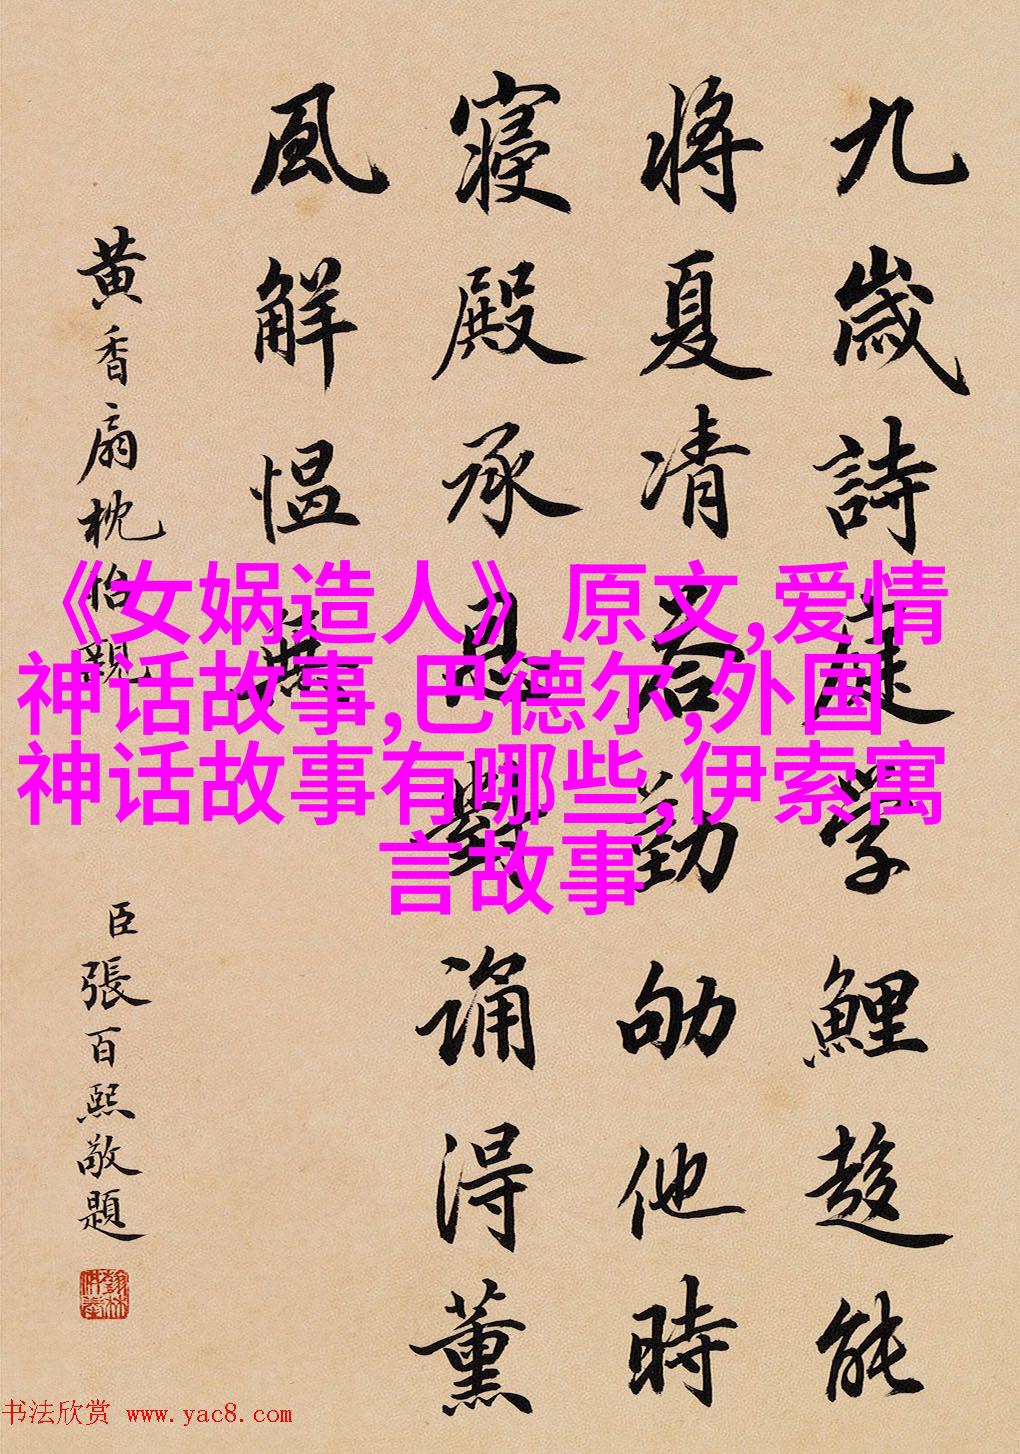 九歲詩庭學鯉趍能
將夏凊勤劬他時
寢殿承恩誦得薰
風解慍
黄香扇枕怡親
臣張百熙敬題
《女娲造人》原文,爱情
神话故事,巴德尔,外国
神话故事有哪些,伊索寓
言故事
书法欣赏 www.yac8.com